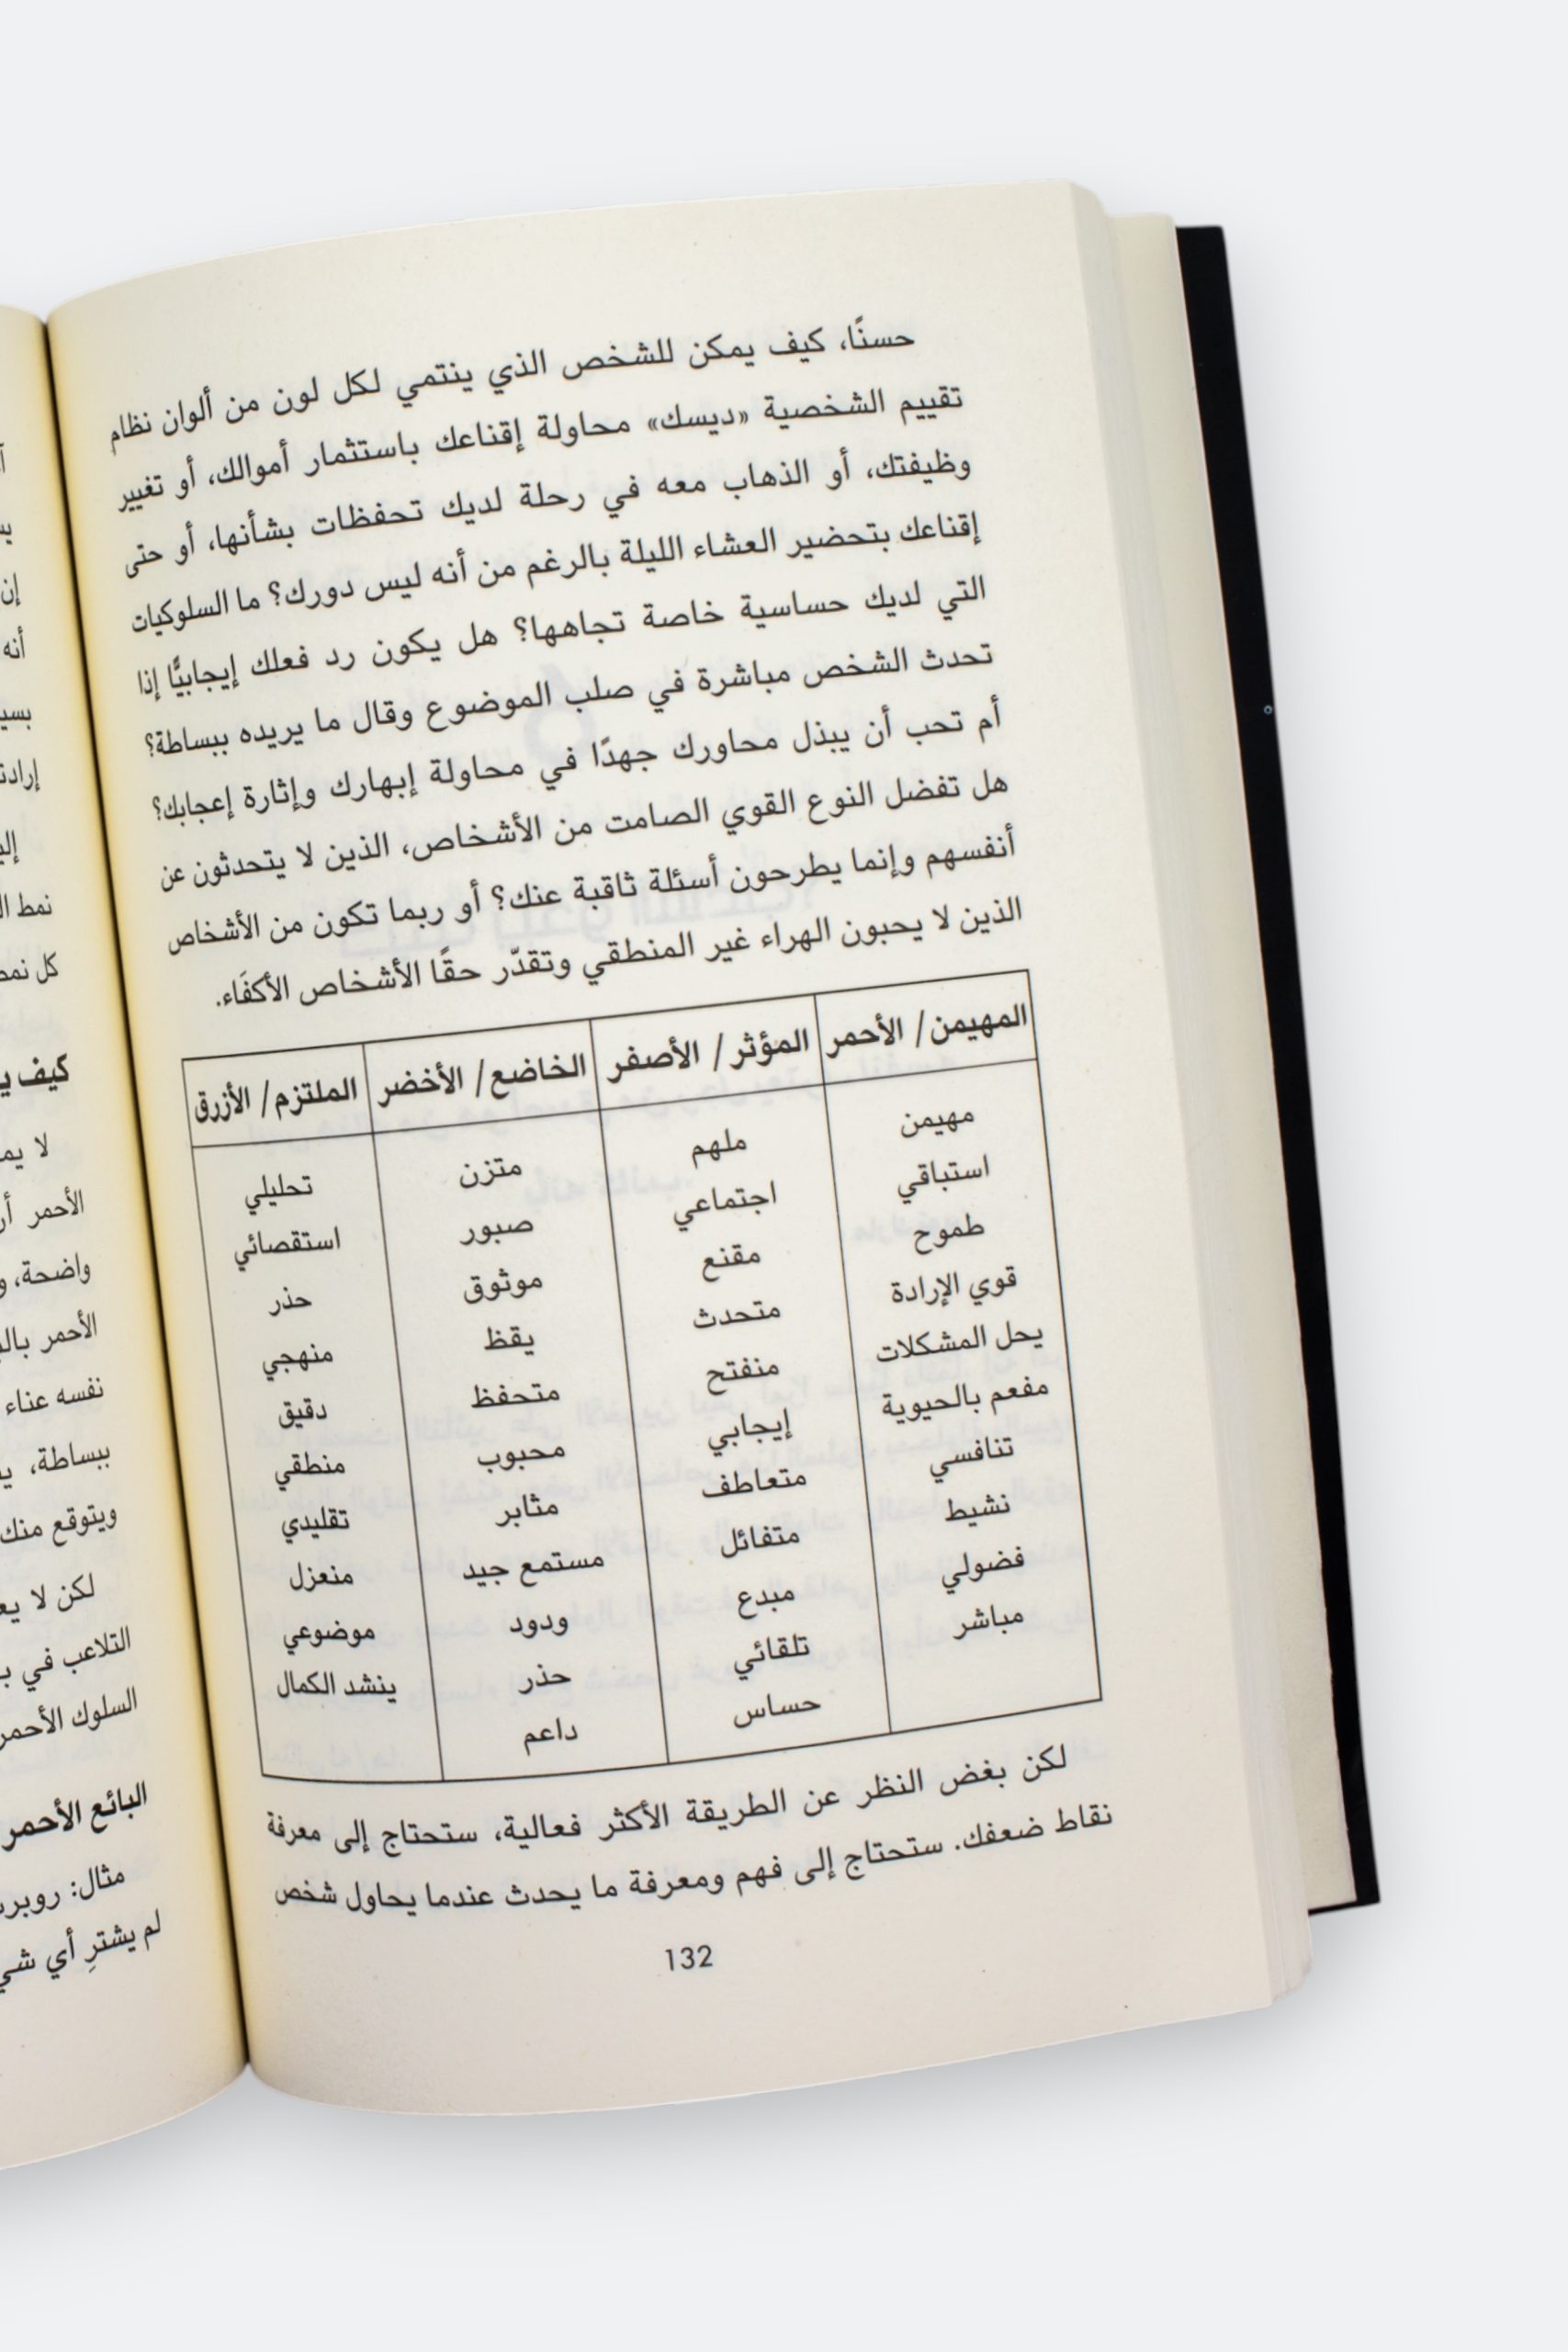 حسنًا، كيف يمكن للشخص الذي ينتمي لكل لون من ألوان نظام
تقييم الشخصية «ديسك» محاولة إقناعك باستثمار أموالك، أو تغيير
وظيفتك، أو الذهاب معه في رحلة لديك تحفظات بشأنها، أو حتى
إقناعك بتحضير العشاء الليلة بالرغم من أنه ليس دورك؟ ما السلوكيات
التي لديك حساسية خاصة تجاهها؟ هل يكون رد فعلك إيجابيًّا إذا
تحدث الشخص مباشرة في صلب الموضوع وقال ما يريده ببساطة؟
أم تحب أن يبذل محاورك جهدًا في محاولة إبهارك وإثارة إعجابك؟
هل تفضل النوع القوي الصامت من الأشخاص، الذين لا يتحدثون عن
أنفسهم وإنما يطرحون أسئلة ثاقبة عنك؟ أو ربما تكون من الأشخاص
الذين لا يحبون الهراء غير المنطقي وتقدّر حقًا الأشخاص الأكفَاء.
المهيمن/ الأحمر المؤثر/ الأصفر الخاضع/ الأخضر الملتزم/ الأزرق
مهيمن ملهم متزن تحليلي
استباقي اجتماعي صبور استقصائي
طموح مقنع موثوق حذر
قوي الإرادة متحدث يقظ منهجي
يحل المشكلات منفتح متحفظ دقيق
مفعم بالحيوية إيجابي محبوب منطقي
تنافسي متعاطف مثابر تقليدي
نشيط متفائل مستمع جيد منعزل
فضولي مبدع ودود موضوعي
مباشر تلقائي حذر ينشد الكمال
حساس داعم
لكن بغض النظر عن الطريقة الأكثر فعالية، ستحتاج إلى معرفة
نقاط ضعفك. ستحتاج إلى فهم ومعرفة ما يحدث عندما يحاول شخص
132
إن
أنه
نمط
كل
كيف
لا
الأحمر
واضحة،
الأحمر
نفسه عناء
ببساطة،
ويتوقع منك
لكن لا
التلاعب في
السلوك الأحمر
البائع الأحمر
مثال:
لم يشترِ أي